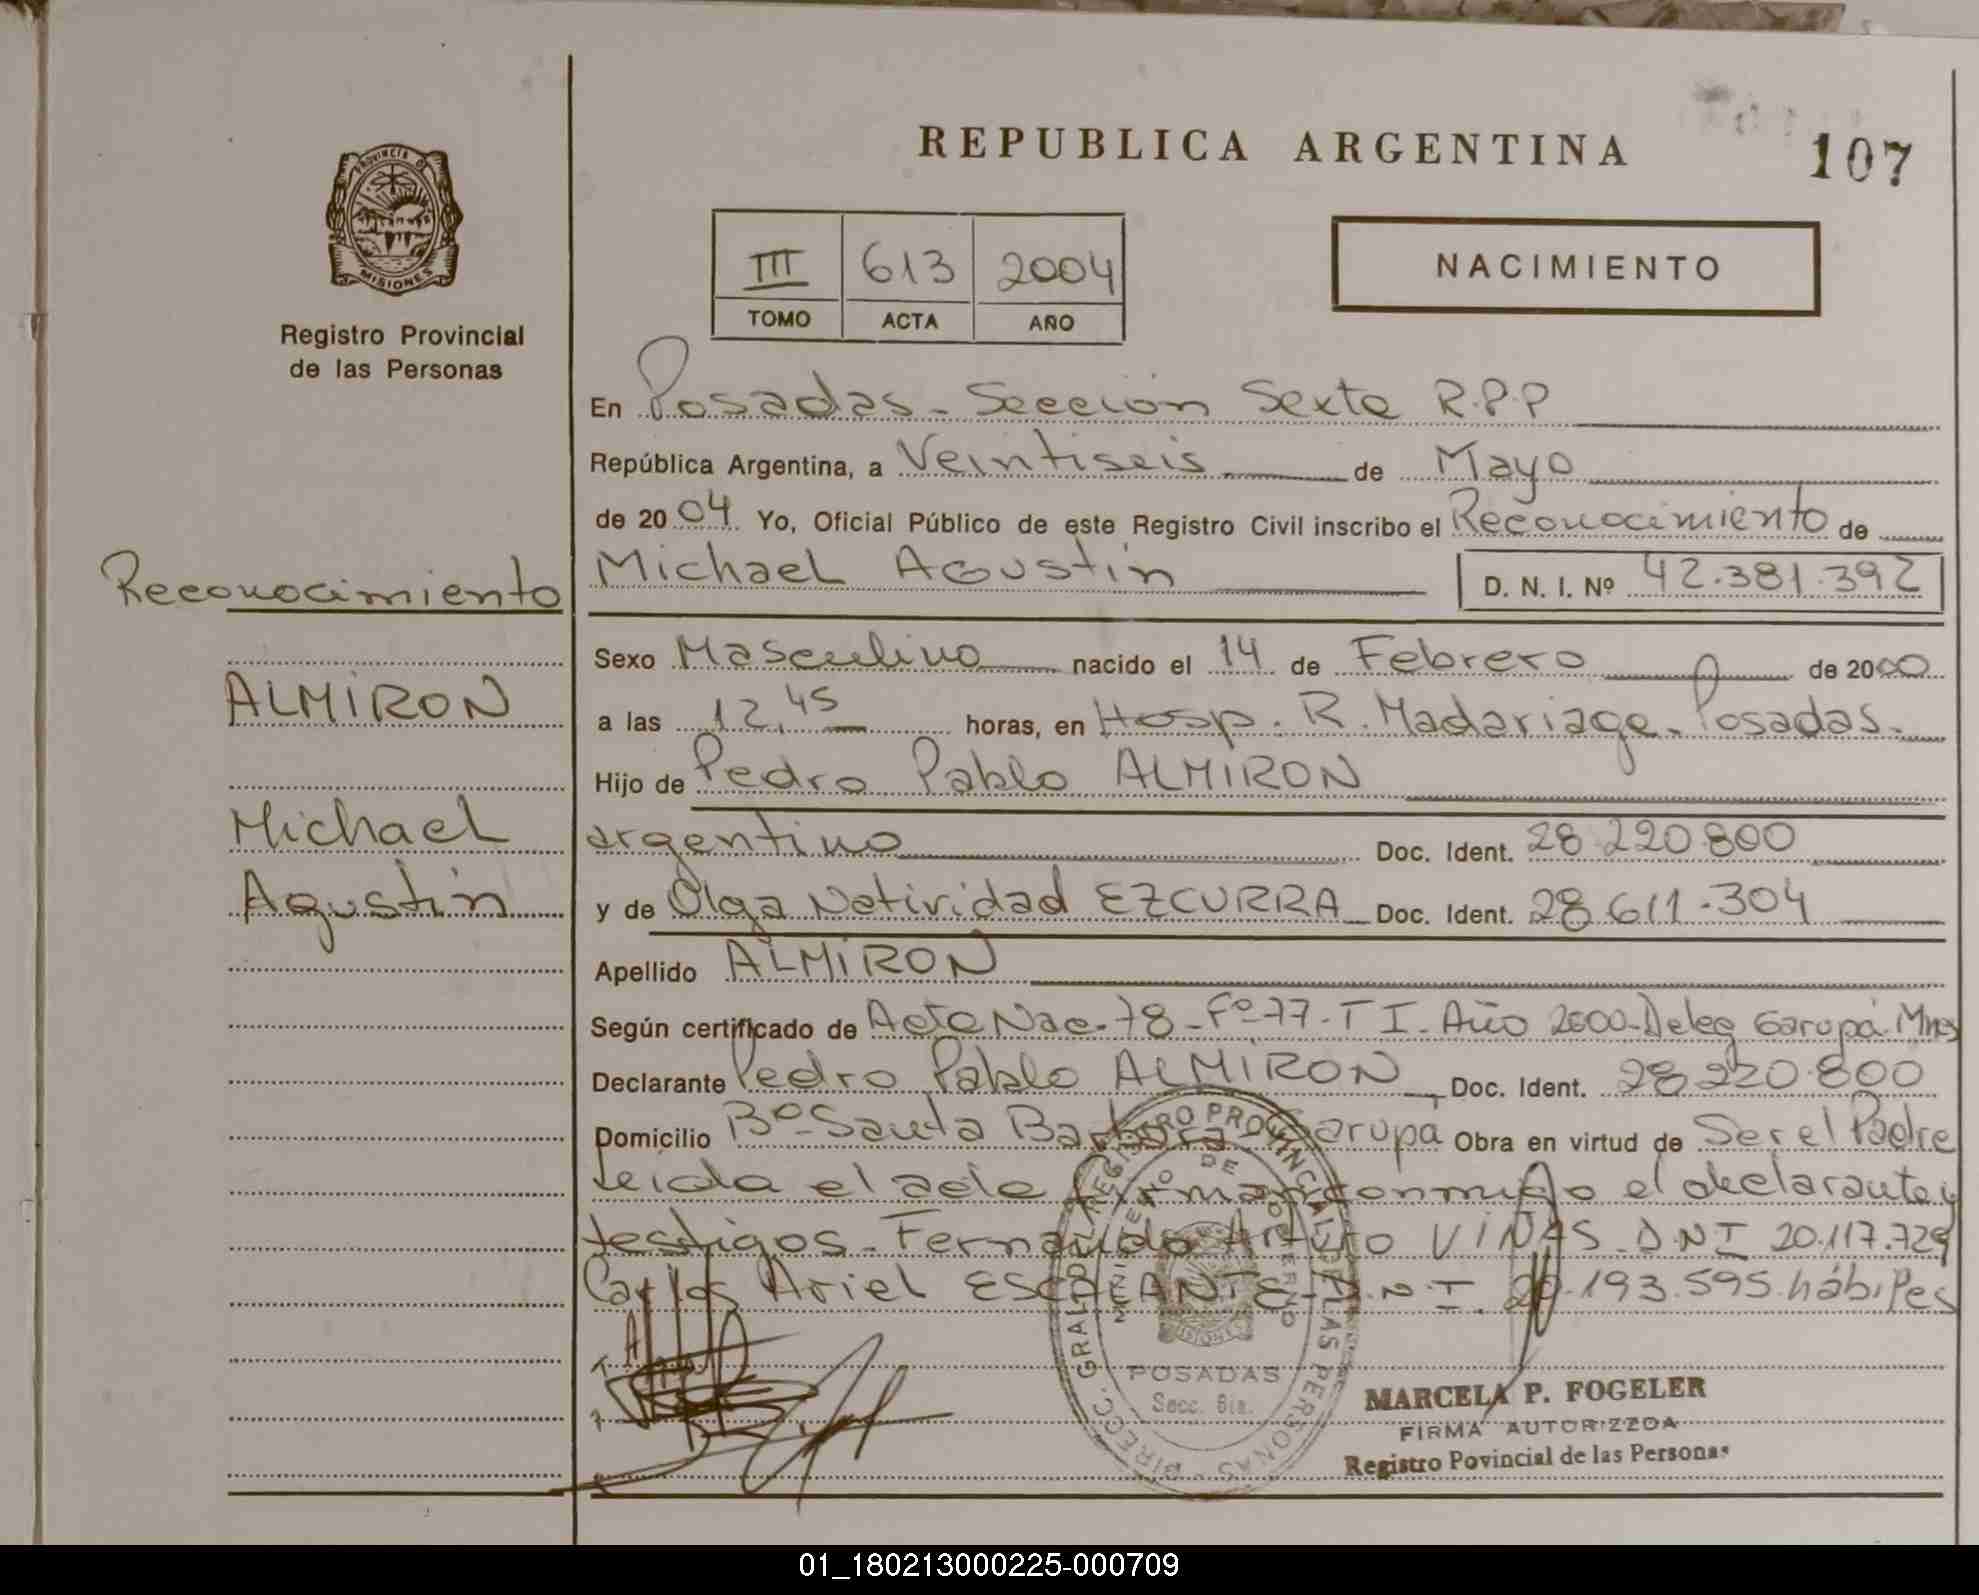 REPUBLICA ARGENTINA
107
PROVINCIA DE
MISIONES
Registro Provincial
de las Personas
III 613 2004
TOMO ACTA AÑO
NACIMIENTO
En Posadas - Sección Sexta R.P.P
República Argentina, a Veintiseis de Mayo
de 2004 Yo, Oficial Público de este Registro Civil inscribo el Reconocimiento de
Michael Agustin D. N. I. Nº 42.381.392
Reconocimiento
ALMIRON
Michael
Agustin
Sexo Masculino nacido el 14 de Febrero de 2000
a las 12,45 horas, en Hosp. R. Madariaga. Posadas.
Hijo de Pedro Pablo ALMIRON
argentino Doc. Ident. 28.220.800
y de Olga Natividad EZCURRA Doc. Ident. 28.611.304
Apellido ALMIRON
Según certificado de Acta Nac. 78 - Fº 77 - T I. Año 2000 - Deleg Garupá. Mnes
Declarante Pedro Pablo ALMIRON Doc. Ident. 28.220.800
Domicilio Bº Santa Barbara Garupa Obra en virtud de Ser el Padre
Leida el acta firman conmigo el declarante y
testigos - Fernando Arturo VIÑAS - D.N.I 20.117.729
Carlos Ariel ESCALANTE - D.N.I. 20.193.595 hábiles
DIRECC. GRAL. DEL REGISTRO PROVINCIAL DE LAS PERSONAS
MINISTERIO DE GOBIERNO
MISIONES
POSADAS
Secc. 6ta.
MARCELA P. FOGELER
FIRMA AUTORIZZDA
Registro Povincial de las Personas
01_180213000225-000709